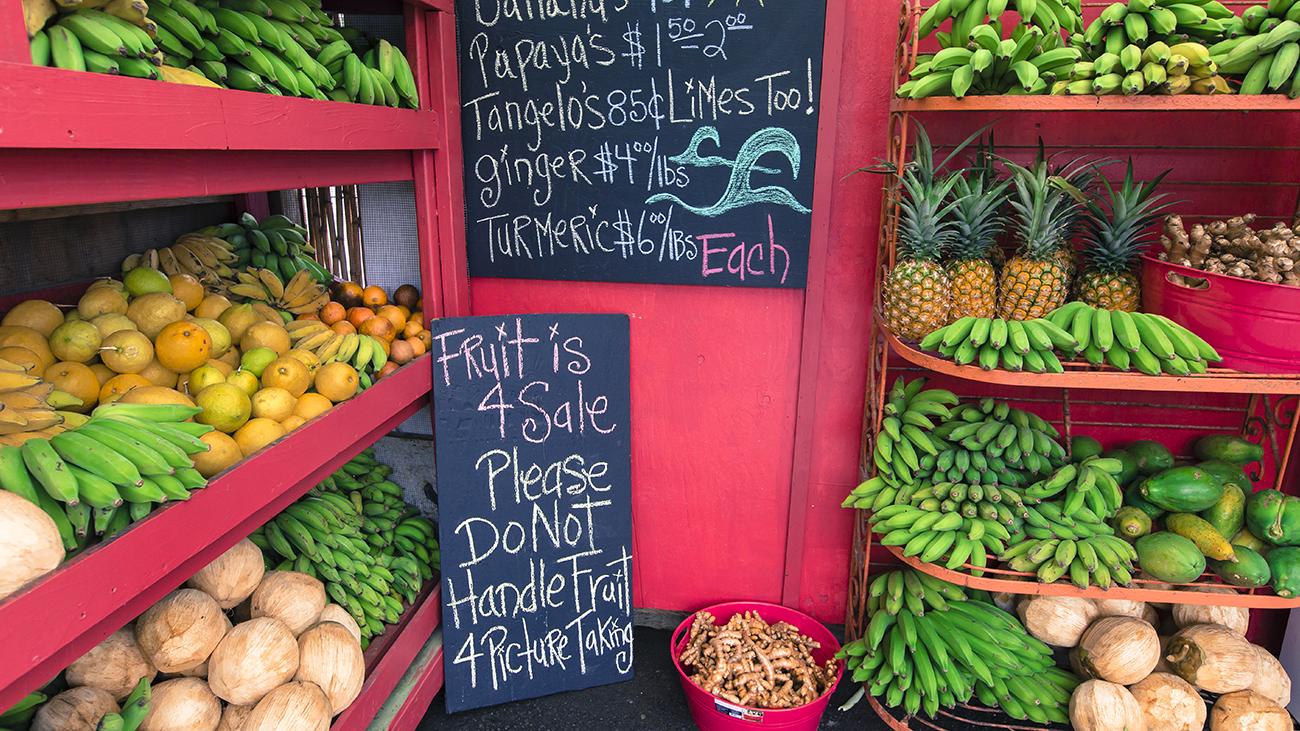 Papaya's $1 50-2 00
Tangelo's 85¢ Limes Too!
ginger $4 00/lbs
Turmeric $6 00/lbs Each
Fruit is
4 Sale
Please
Do Not
Handle Fruit
4 Picture Taking